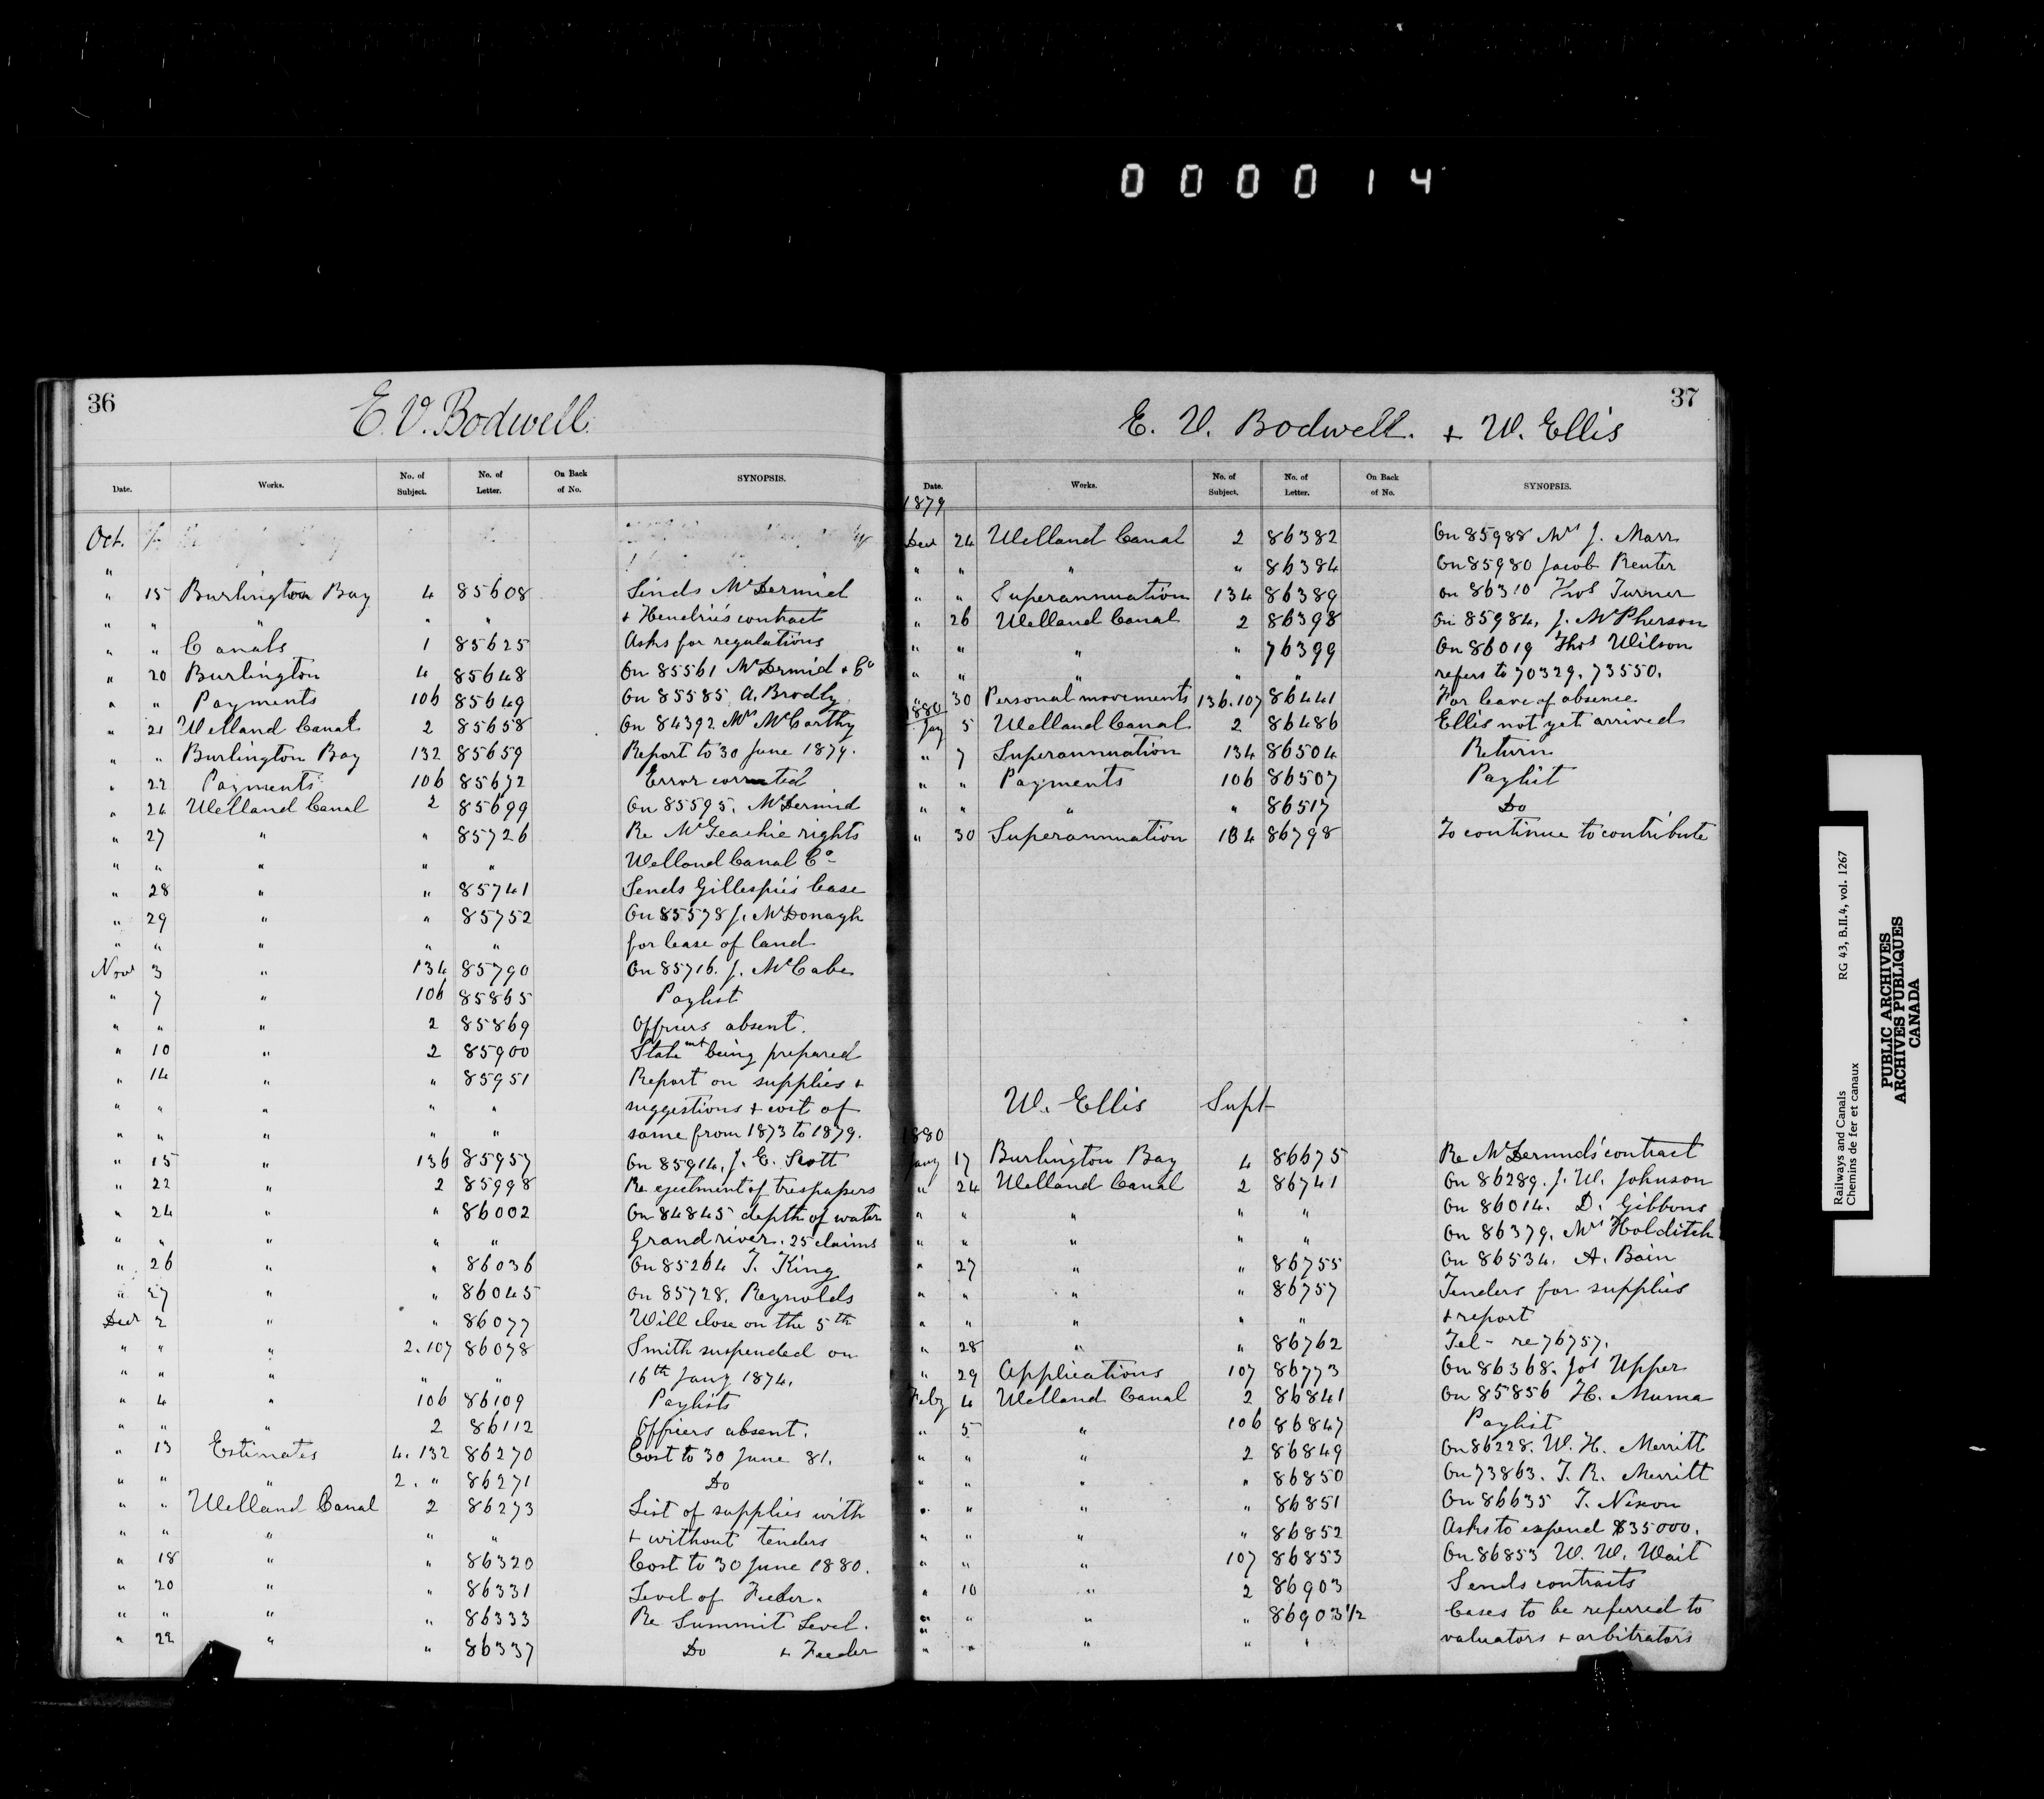 000014
36
E. V. Bodwell.
Date. Works. No. of Subject. No. of Letter. On Back of No. SYNOPSIS.
Oct.
"
" 15 Burlington Bay 4 85608 Sends McDermid
" " " " " + Hendrie's contract
" " Canals 1 85625 Asks for regulations
" 20 Burlington 4 85648 On 85561 McDermid + Co
" " Payments 106 85649 On 85585 A. Brodly
" 21 Welland Canal 2 85658 On 84392 Mrs McCarthy
" " Burlington Bay 132 85659 Report to 30 June 1879.
" 22 Payments 106 85672 Error corrected
" 24 Welland Canal 2 85699 On 85595. McDermid
" 27 " " 85726 Re McGeachie rights
" " " " " Welland Canal Co
" 28 " " 85741 Sends Gillespie's lease
" 29 " " 85752 On 85578 J. McDonagh
" " " " " for lease of land
Novr 3 " 134 85790 On 85716. J. McCabe
" 7 " 106 85865 Paylist
" " " 2 85869 Officers absent.
" 10 " 2 85900 Statemt being prepared
" 14 " " 85951 Report on supplies +
" " " " " suggestions + cost of
" " " " " same from 1873 to 1879.
" 15 " 136 85957 On 85914, J. E. Scott
" 22 " 2 85998 Re ejectment of trespassers
" 24 " " 86002 On 84845 depth of water
" " " " " Grand river. 25 claims
" 26 " " 86036 On 85264 T. King
" 27 " " 86045 On 85728. Reynolds
Decr 2 " " 86077 Will close on the 5th
" " " 2.107 86078 Smith suspended on
" " " " " 16th Jany 1874.
" 4 " 106 86109 Paylists
" " " 2 86112 Officers absent.
" 13 Estimates 4.132 86270 Cost to 30 June 81.
" " " 2. " 86271 Do
" " Welland Canal 2 86273 List of supplies with
" " " " " + without tenders
" 18 " " 86320 Cost to 30 June 1880.
" 20 " " 86331 Level of Feeder.
" " " " 86333 Re Summit Level.
" 22 " " 86337 Do + Feeder
37
E. V. Bodwell. + W. Ellis
Date. Works. No. of Subject. No. of Letter. On Back of No. SYNOPSIS.
1879
Decr 24 Welland Canal 2 86382 On 85988 Mrs J. Marr
" " " " 86384 On 85980 Jacob Reuter
" " Superannuation 134 86389 on 86310 Thos Turner
" 26 Welland Canal 2 86398 On 85984, J. McPherson
" " " " 76399 On 86019 Thos Wilson
" " " " " refers to 70329. 73550.
" 30 Personal movements 136.107 86441 For leave of absence
1880
Jany 5 Welland Canal 2 86486 Ellis not yet arrived
" 7 Superannuation 134 86504 Return
" " Payments 106 86507 Paylist
" " " " 86517 Do
" 30 Superannuation 134 86798 To continue to contribute
W. Ellis Supt
1880
Jany 17 Burlington Bay 4 86675 Re McDermid's contract
" 24 Welland Canal 2 86741 On 86289. J. W. Johnson
" " " " " On 86014. D. Gibbons
" " " " " On 86379. Mrs Holditch
" 27 " " 86755 On 86534. A. Bain
" " " " 86757 Tenders for supplies
" " " " " + report
" 28 " " 86762 Tel - re 76757.
" 29 Applications 107 86773 On 86368. Jos Upper
Feby 4 Welland Canal 2 86841 On 85856 H. Muma
" 5 " 106 86847 Paylist
" " " 2 86849 On 86228. W. H. Merritt
" " " " 86850 On 73863. T. R. Merritt
" " " " 86851 On 86635 T. Nixon
" " " " 86852 Asks to expend $35000.
" " " 107 86853 On 86853 W. W. Wait
" 10 " 2 86903 Sends contracts
" " " " 86903 1/2 Cases to be referred to
" " " " " valuators + arbitrators
Railways and Canals RG 43, B.II.4, vol. 1267
Chemins de fer et canaux
PUBLIC ARCHIVES
ARCHIVES PUBLIQUES
CANADA